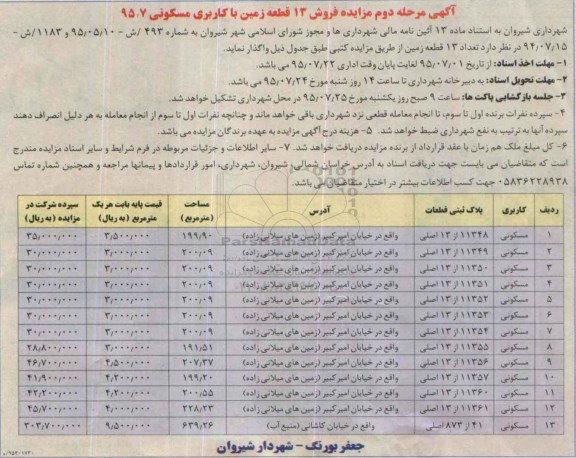 آگهی مرحله دوم مزایده فروش ۱۳ قطعه زمین با کاربری مسکونی ۹۵.۷
شهرداری شیروان به استناد ماده ۱۳ آئین نامه مالی شهرداری ها و مجوز شورای اسلامی شهر شیروان به شماره ۴۹۳ /ش - ۹۵/۰۵/۱۰ و ۱۱۸۳/ش -
۹۴/۰۷/۱۵ در نظر دارد تعداد ۱۳ قطعه زمین از طریق مزایده کتبی طبق جدول ذیل واگذار نماید.
۱- مهلت اخذ اسناد: از تاریخ ۹۵/۰۷/۰۱ لغایت پایان وقت اداری ۹۵/۰۷/۲۲ می باشد.
۲- مهلت تحویل اسناد: به دبیرخانه شهرداری تا ساعت ۱۴ روز شنبه مورخ ۹۵/۰۷/۲۴ می باشد.
۳- جلسه بازگشایی پاکت ها: ساعت ۹ صبح روز یکشنبه مورخ ۹۵/۰۷/۲۵ در محل شهرداری تشکیل خواهد شد.
۴- سپرده نفرات برنده اول تا سوم، تا انجام معامله قطعی نزد شهرداری باقی خواهد ماند و چنانچه نفرات اول تا سوم از انجام معامله به هر دلیل انصراف دهند
سپرده آنها به ترتیب به نفع شهرداری ضبط خواهد شد. ۵- هزینه درج آگهی مزایده به عهده برندگان مزایده می باشد.
۶- کل مبلغ ملک هم زمان با عقد قرارداد از برنده مزایده دریافت خواهد شد. ۷- سایر اطلاعات و جزئیات مربوطه در فرم شرایط و سایر اسناد مزایده مندرج
است که متقاضیان می بایست جهت دریافت اسناد به آدرس خراسان شمالی، شیروان، شهرداری، امور قراردادها و پیمانها مراجعه و همچنین شماره تماس
۰۵۸۳۶۲۲۸۹۳۸ جهت کسب اطلاعات بیشتر در اختیار متقاضیان می باشد.
ردیف کاربری پلاک ثبتی قطعات آدرس مساحت (مترمربع) قیمت پایه بابت هر یک مترمربع (به ریال) سپرده شرکت در مزایده (به ریال)
۱ مسکونی ۱۱۳۴۸ از ۱۳ اصلی واقع در خیابان امیرکبیر (زمین های میلانی زاده) ۱۹۹/۹۰ ۳,۵۰۰,۰۰۰ ۳۵,۰۰۰,۰۰۰
۲ مسکونی ۱۱۳۴۹ از ۱۳ اصلی واقع در خیابان امیرکبیر (زمین های میلانی زاده) ۲۰۰/۰۹ ۳,۰۰۰,۰۰۰ ۳۰,۰۰۰,۰۰۰
۳ مسکونی ۱۱۳۵۰ از ۱۳ اصلی واقع در خیابان امیرکبیر (زمین های میلانی زاده) ۲۰۰/۰۹ ۳,۰۰۰,۰۰۰ ۳۰,۰۰۰,۰۰۰
۴ مسکونی ۱۱۳۵۱ از ۱۳ اصلی واقع در خیابان امیرکبیر (زمین های میلانی زاده) ۲۰۰/۰۹ ۳,۰۰۰,۰۰۰ ۳۰,۰۰۰,۰۰۰
۵ مسکونی ۱۱۳۵۲ از ۱۳ اصلی واقع در خیابان امیرکبیر (زمین های میلانی زاده) ۲۰۰/۰۹ ۳,۰۰۰,۰۰۰ ۳۰,۰۰۰,۰۰۰
۶ مسکونی ۱۱۳۵۳ از ۱۳ اصلی واقع در خیابان امیرکبیر (زمین های میلانی زاده) ۲۰۰/۰۹ ۳,۰۰۰,۰۰۰ ۳۰,۰۰۰,۰۰۰
۷ مسکونی ۱۱۳۵۴ از ۱۳ اصلی واقع در خیابان امیرکبیر (زمین های میلانی زاده) ۲۰۰/۰۹ ۳,۰۰۰,۰۰۰ ۳۰,۰۰۰,۰۰۰
۸ مسکونی ۱۱۳۵۵ از ۱۳ اصلی واقع در خیابان امیرکبیر (زمین های میلانی زاده) ۱۹۱/۵۱ ۳,۰۰۰,۰۰۰ ۲۸,۸۰۰,۰۰۰
۹ مسکونی ۱۱۳۵۶ از ۱۳ اصلی واقع در خیابان امیرکبیر (زمین های میلانی زاده) ۲۰۷/۳۷ ۴,۵۰۰,۰۰۰ ۴۶,۷۰۰,۰۰۰
۱۰ مسکونی ۱۱۳۵۷ از ۱۳ اصلی واقع در خیابان امیرکبیر (زمین های میلانی زاده) ۱۹۹/۲۰ ۴,۲۰۰,۰۰۰ ۴۱,۹۰۰,۰۰۰
۱۱ مسکونی ۱۱۳۶۰ از ۱۳ اصلی واقع در خیابان امیرکبیر (زمین های میلانی زاده) ۲۰۰/۵۵ ۴,۲۰۰,۰۰۰ ۴۲,۲۰۰,۰۰۰
۱۲ مسکونی ۱۱۳۶۱ از ۱۳ اصلی واقع در خیابان امیرکبیر (زمین های میلانی زاده) ۲۲۸/۲۳ ۴,۰۰۰,۰۰۰ ۴۵,۷۰۰,۰۰۰
۱۳ مسکونی ۴۱ از ۸۷۳ اصلی واقع در خیابان کاشانی (منبع آب) ۶۳۹/۲۶ ۹,۵۰۰,۰۰۰ ۳۰۳,۷۰۰,۰۰۰
جعفر بورنگ - شهردار شیروان